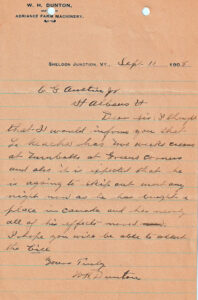 W. H. DUNTON,
AGENT FOR
ADRIANCE FARM MACHINERY.
SHELDON JUNCTION, VT., Sept 11 1908
C G Austin Jr
St Albans Vt
Dear Sir. I thought
that I would inform you that
has two weeks cream
at Turnbulls at Greens Corners
and also it is expected that he
is a going to skip out most any
night now as he has bought a
place in Canada and has
all of his effects
I hope you will be able to
the Bill
Yours Truly
W H Dunton